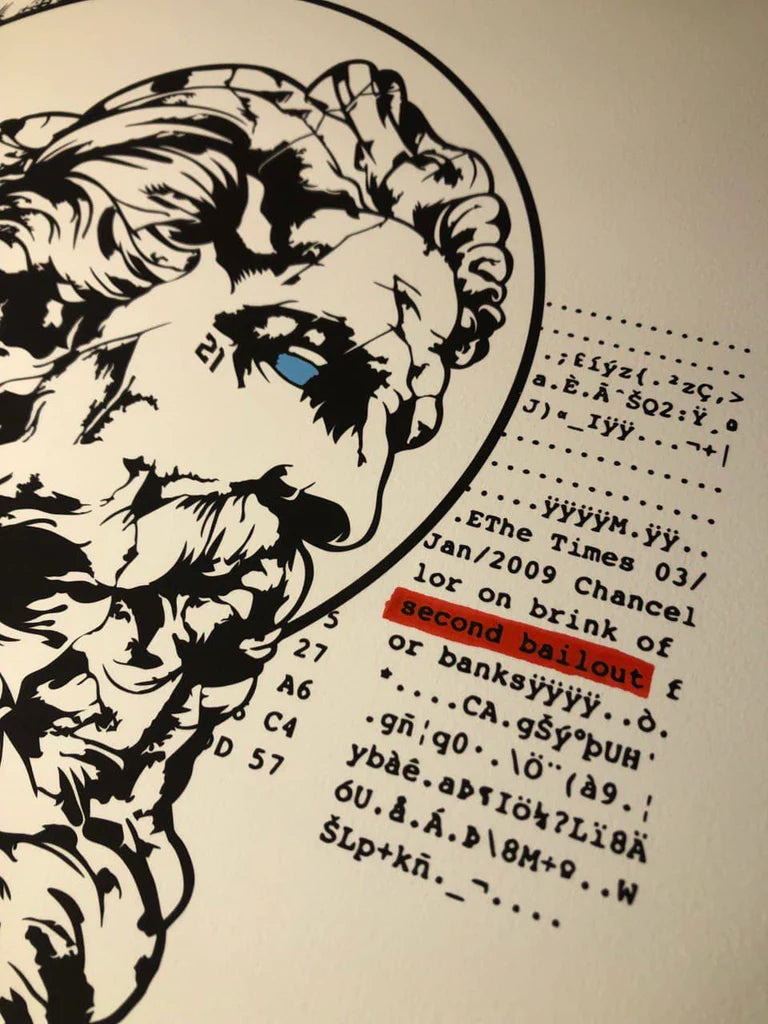 21
. . . . . . . . . . . . . .
. . . . . . . . . . . . . .
.;£íýz{.²zÇ,>
a.È.Ã^ŠQ2:Ÿ¸ª
J)«_Iÿÿ...¬+|
. . . . . . . . . . . . . .
. . . . . . . . . . . . . .
.....ÿÿÿÿM.ÿÿ..
.EThe Times 03/
Jan/2009 Chancel
lor on brink of
second bailout f
or banksÿÿÿÿ..ò.
*....CA.gŠý°þUH'
.gñ¦q0·.\Ö¨(à9.¦
ybàê.aÞ¶Iö½?Lï8Ä
6U.å.Á.Þ\8M+º..W
ŠLp+kñ._¬....
5
27
A6
C4
D 57